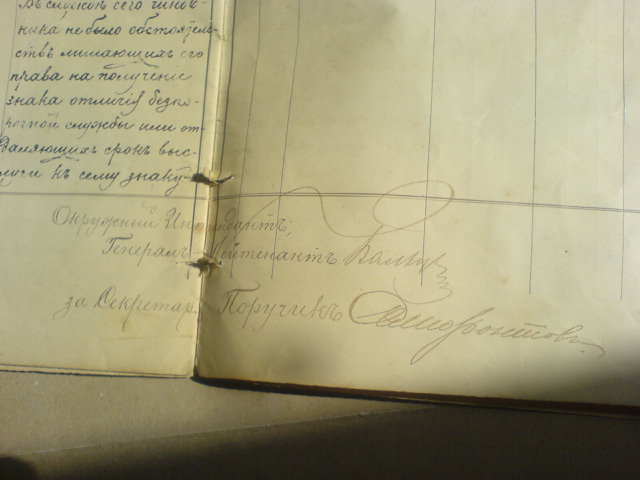 Въ службѣ сего чинов-
ника не было обстоятель-
ствъ лишающихъ его
права на полученіе
знака отличія безпо-
рочной службы или от-
даляющихъ срокъ выс-
луги къ сему знаку.
Окружный Интендантъ,
Генералъ Лейтенантъ
за Секретаря Поручикъ